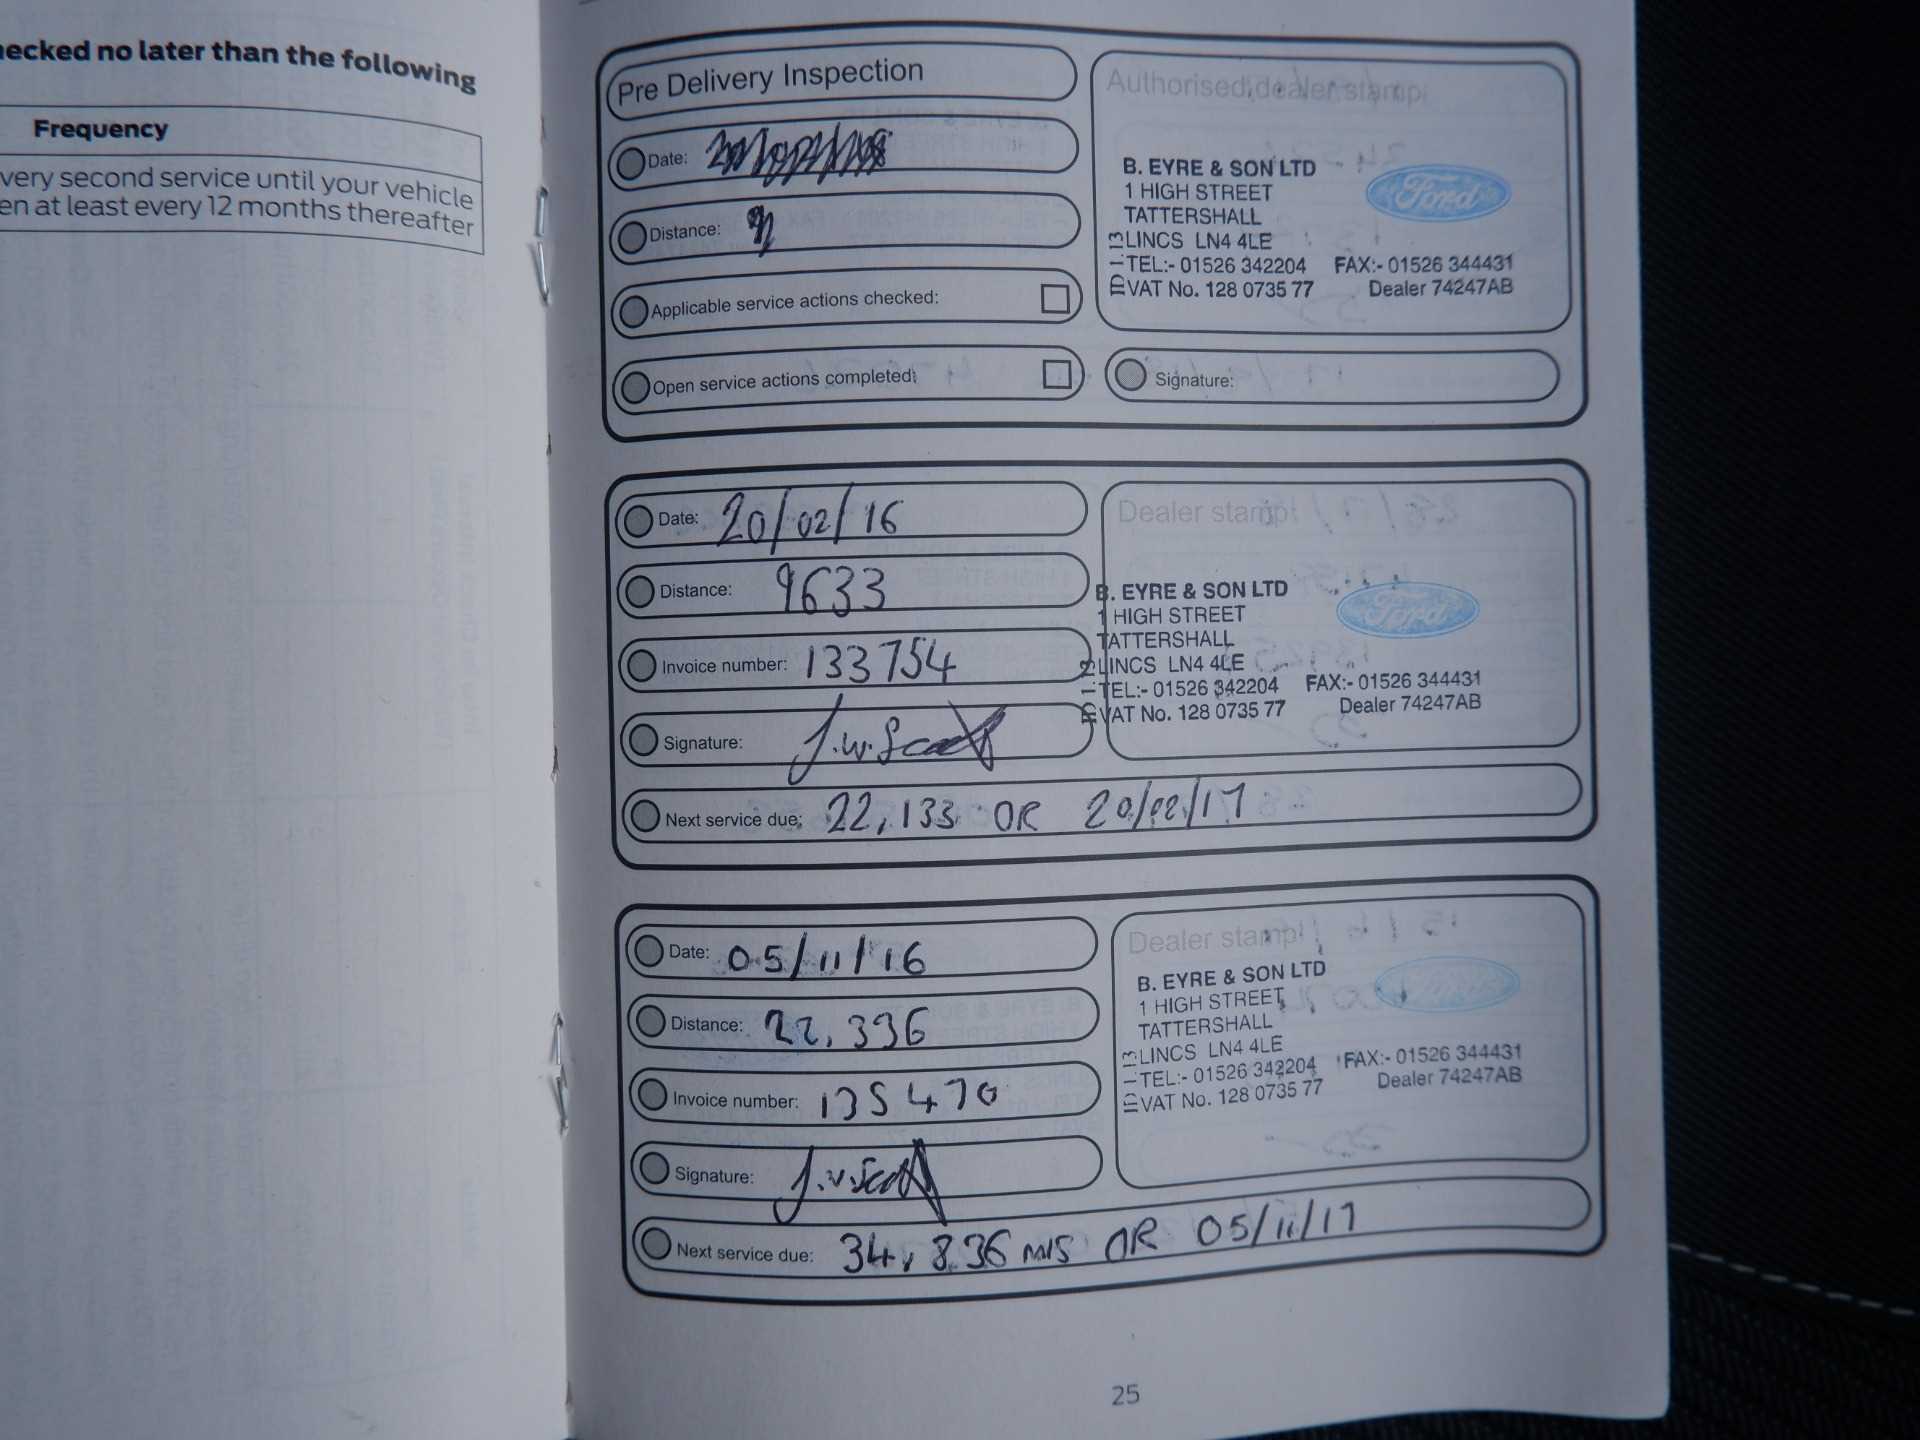 hecked no later than the following
Frequency
very second service until your vehicle
en at least every 12 months thereafter
Pre Delivery Inspection
Date:
Distance:
Applicable service actions checked:
Open service actions completed:
Authorised dealer stamp:
B. EYRE & SON LTD
1 HIGH STREET
TATTERSHALL
LINCS LN4 4LE
TEL:- 01526 342204 FAX:- 01526 344431
VAT No. 128 0735 77 Dealer 74247AB
Ford
Signature:
Date: 20/02/16
Distance: 9633
Invoice number: 133754
Signature: J.W.Scott
Next service due: 22,133 OR 20/02/17
Dealer stamp:
B. EYRE & SON LTD
1 HIGH STREET
TATTERSHALL
LINCS LN4 4LE
TEL:- 01526 342204 FAX:- 01526 344431
VAT No. 128 0735 77 Dealer 74247AB
Ford
Date: 05/11/16
Distance: 22,336
Invoice number: 135470
Signature:
Next service due: 34,836 MLS OR 05/11/17
Dealer stamp:
B. EYRE & SON LTD
1 HIGH STREET
TATTERSHALL
LINCS LN4 4LE
TEL:- 01526 342204 FAX:- 01526 344431
VAT No. 128 0735 77 Dealer 74247AB
25